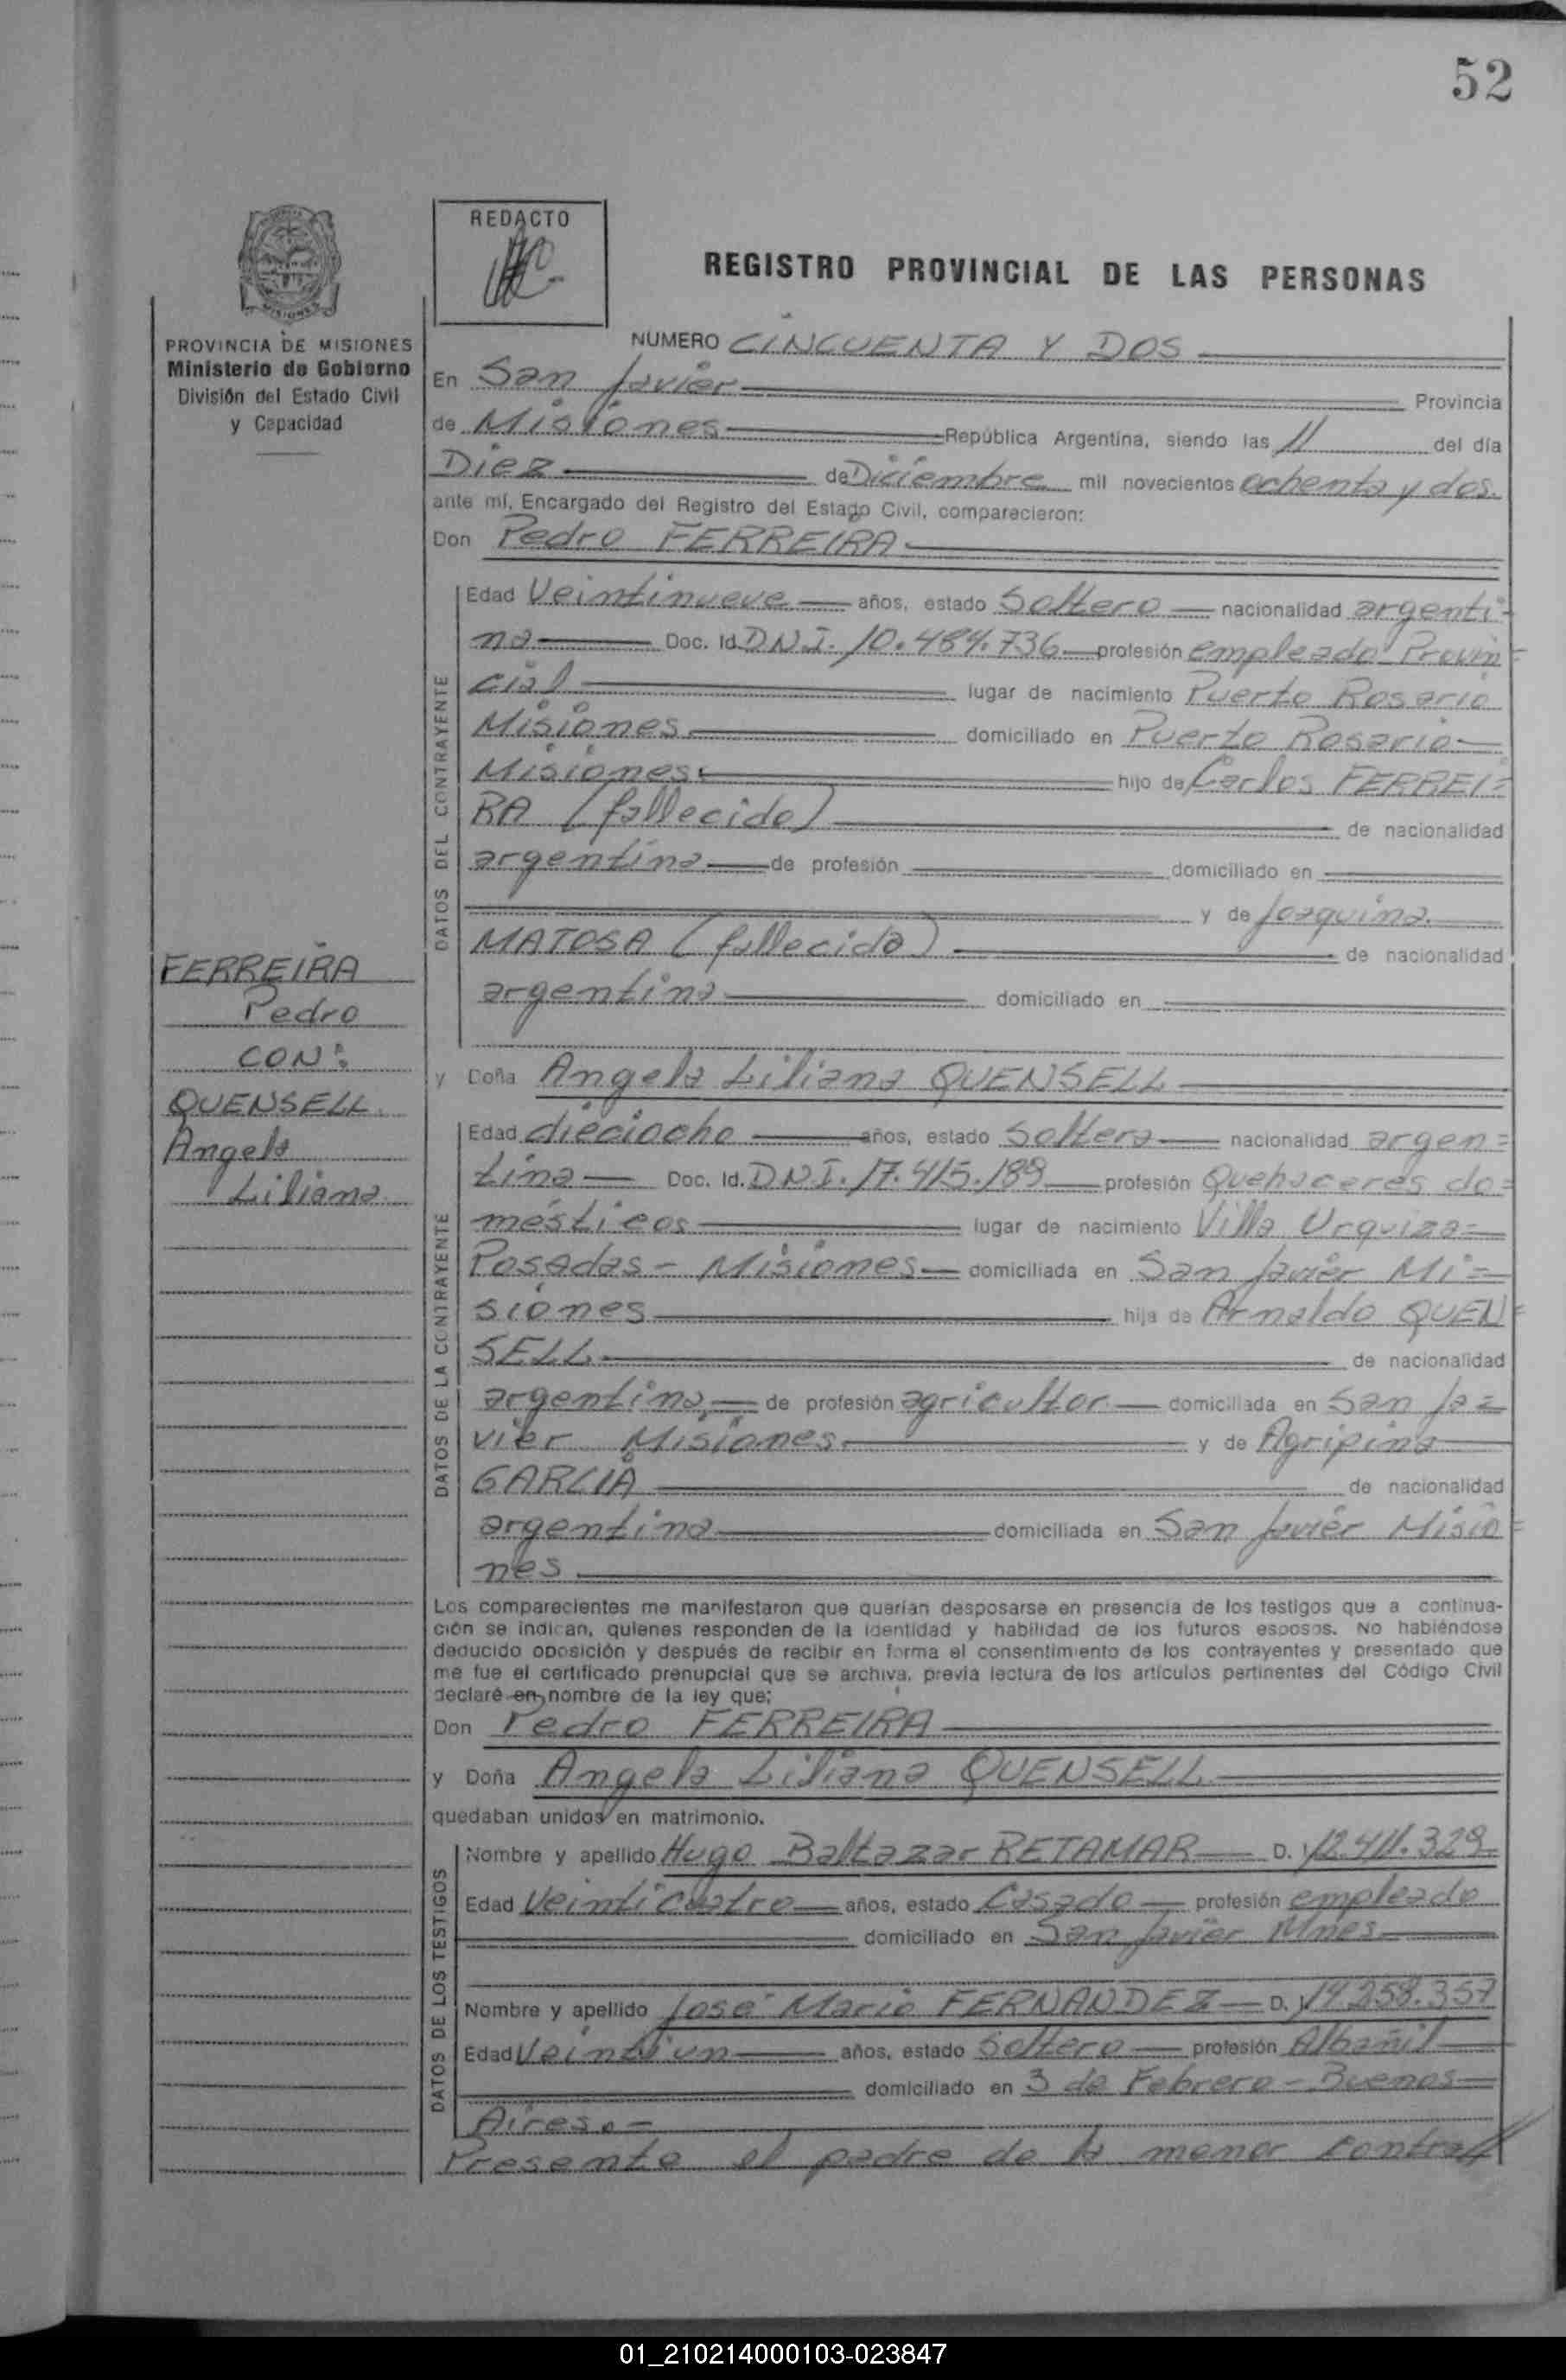 52
REDACTO
REGISTRO PROVINCIAL DE LAS PERSONAS
MISIONES
PROVINCIA DE MISIONES
Ministerio de Gobierno
División del Estado Civil
y Capacidad
FERREIRA
Pedro
CON:
QUENSELL
Angela
Liliana
NUMERO CINCUENTA Y DOS
En San Javier Provincia
de Misiones República Argentina, siendo las 11 del día
Diez de Diciembre mil novecientos ochenta y dos.
ante mí, Encargado del Registro del Estado Civil, comparecieron:
Don Pedro FERREIRA
DATOS DEL CONTRAYENTE
Edad Veintinueve años, estado Soltero nacionalidad argenti=
na Doc. Id. D.N.I. 10.484.736 profesión empleado Provin=
cial lugar de nacimiento Puerto Rosario
Misiones domiciliado en Puerto Rosario
Misiones hijo de Carlos FERREI=
RA (fallecido) de nacionalidad
argentina de profesión domiciliado en
y de Joaquina
MATOSA (fallecida) de nacionalidad
argentina domiciliado en
y Doña Angela Liliana QUENSELL
DATOS DE LA CONTRAYENTE
Edad dieciocho años, estado Soltera nacionalidad argen=
tina Doc. Id. D.N.I. 17.415.189 profesión Quehaceres do=
mésticos lugar de nacimiento Villa Urquiza=
Posadas - Misiones domiciliada en San Javier Mi=
siones hija de Arnaldo QUEN=
SELL de nacionalidad
argentina de profesión agricultor domiciliada en San Ja=
vier Misiones y de Agripina
GARCIA de nacionalidad
argentina domiciliada en San Javier Misio=
nes
Los comparecientes me manifestaron que querían desposarse en presencia de los testigos que a continua-
ción se indican, quienes responden de la identidad y habilidad de los futuros esposos. No habiéndose
deducido oposición y después de recibir en forma el consentimiento de los contrayentes y presentado que
me fue el certificado prenupcial que se archiva, previa lectura de los artículos pertinentes del Código Civil
declaré en nombre de la ley que:
Don Pedro FERREIRA
y Doña Angela Liliana QUENSELL
quedaban unidos en matrimonio.
DATOS DE LOS TESTIGOS
Nombre y apellido Hugo Baltazar RETAMAR D. 12.411.329
Edad Veinticuatro años, estado Casado profesión empleado
domiciliado en San Javier Mnes
Nombre y apellido José Mario FERNANDEZ D. 14.258.357
Edad Veintiun años, estado Soltero profesión Albañil
domiciliado en 3 de Febrero - Buenos
Aires.=
Presente el padre de la menor contra
01_210214000103-023847